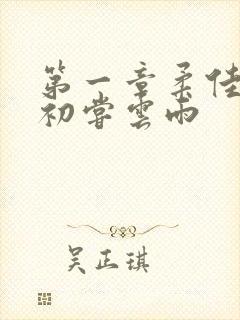 第一章柔佳
初尝雲雨
吴正琪